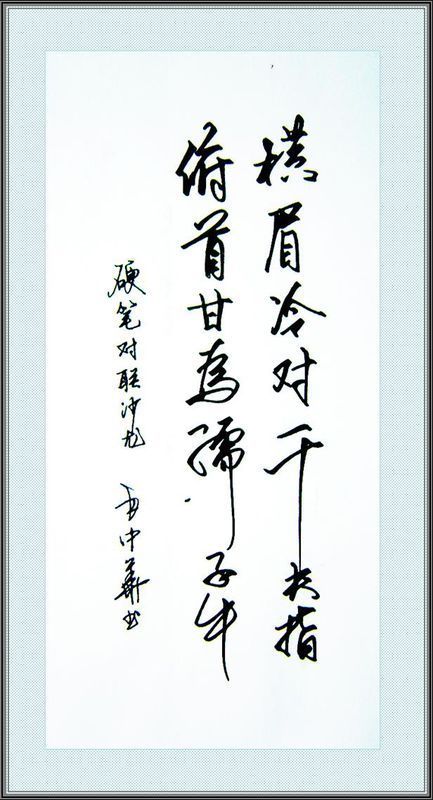 横眉冷对千夫指
俯首甘為孺子牛
硬笔对联沙龙 中華书